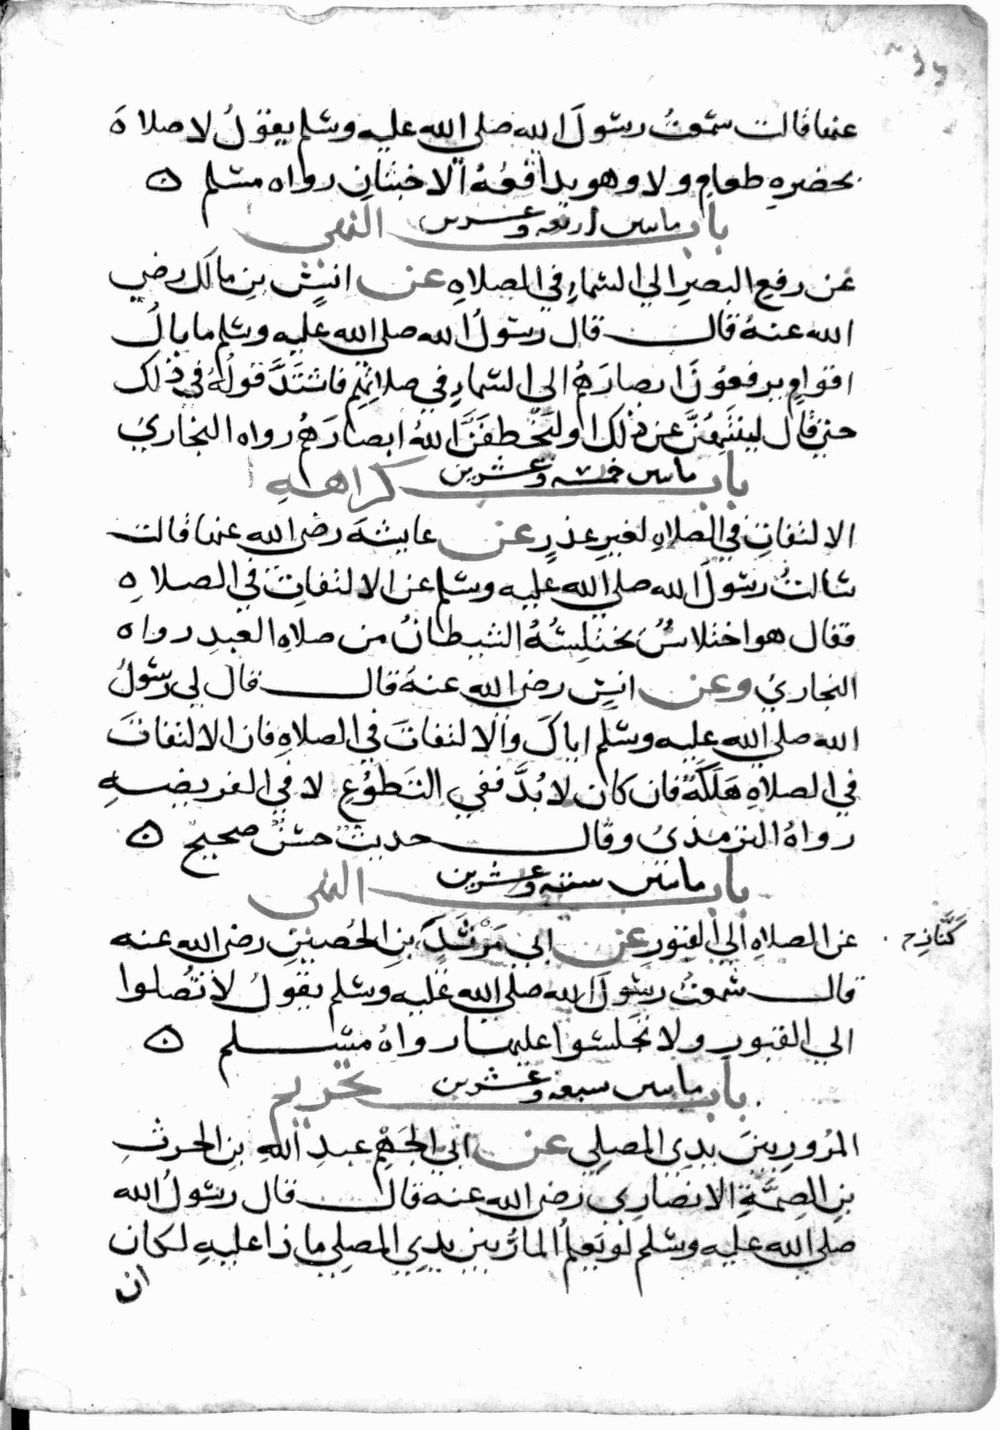 عنها قالت سمعتُ رسولَ الله صلي الله عليه وسلم يقولُ لا صلاة
بحضرةِ طعامٍ ولا وهو يدافعُهُ الاخبثانِ رواه مسلم ه
باب مايس اربعه وعشرين النهي
عن رفعِ البصرِ الي السماءِ في الصلاةِ عن انسٍ بنِ مالك رضي
الله عنهُ قال قال رسولُ الله صلي الله عليه وسلم ما بالُ
اقوامٍ يرفعُونَ ابصارَهُم الي السماءِ في صلاتِهِم فاشتدَّ قولُهُ في ذلك
حتي قال لينتهُنَّ عن ذلك او لتُخطفَنَّ اللهُ ابصارَهُم رواه البخاري
باب مايس خمسه وعشرين كراهةِ
الالتفاتِ في الصلاةِ لغيرِ عذرٍ عن عايشةَ رضي الله عنها قالت
سالتُ رسولَ الله صلي الله عليه وسلم عن الالتفاتِ في الصلاةِ
فقال هو اختلاسٌ يختلِسُهُ الشيطانُ من صلاةِ العبدِ رواه
البخاري وعن انسٍ رضي الله عنهُ قال قال لي رسولُ
الله صلي الله عليه وسلم اياكَ والالتفاتَ في الصلاةِ فان الالتفاتَ
في الصلاةِ هَلَكَةٌ فان كان لا بُدَّ ففي التَطوُّعِ لا في الفريضةِ
رواهُ الترمذيُ وقال حديث حسنٌ صحيحٌ ه
باب مايس سته وعشرين النهي
عن الصلاةِ الي القبور عن ابي مَرْثَدَ بنِ الحُصينِ رضي الله عنه
كَنَّاز ح
قال سمعتُ رسولَ الله صلي الله عليه وسلم يقولُ لا تُصلوا
الي القبورِ ولا تَجلسُوا عليها رواهُ مسلم ه
باب مايس سبعه وعشرين تحريم
المرُورِ بينَ يديِ المصلِي عن ابي الجَهْمِ عبدِ اللهِ بنِ الحرثِ
بنِ الصِمَّةِ الانصارِي رضي الله عنه قال قال رسولُ الله
صلي الله عليه وسلم لو يَعلمُ المارُّ بين يديِ المصلِي ماذا عليهِ لكان
ان